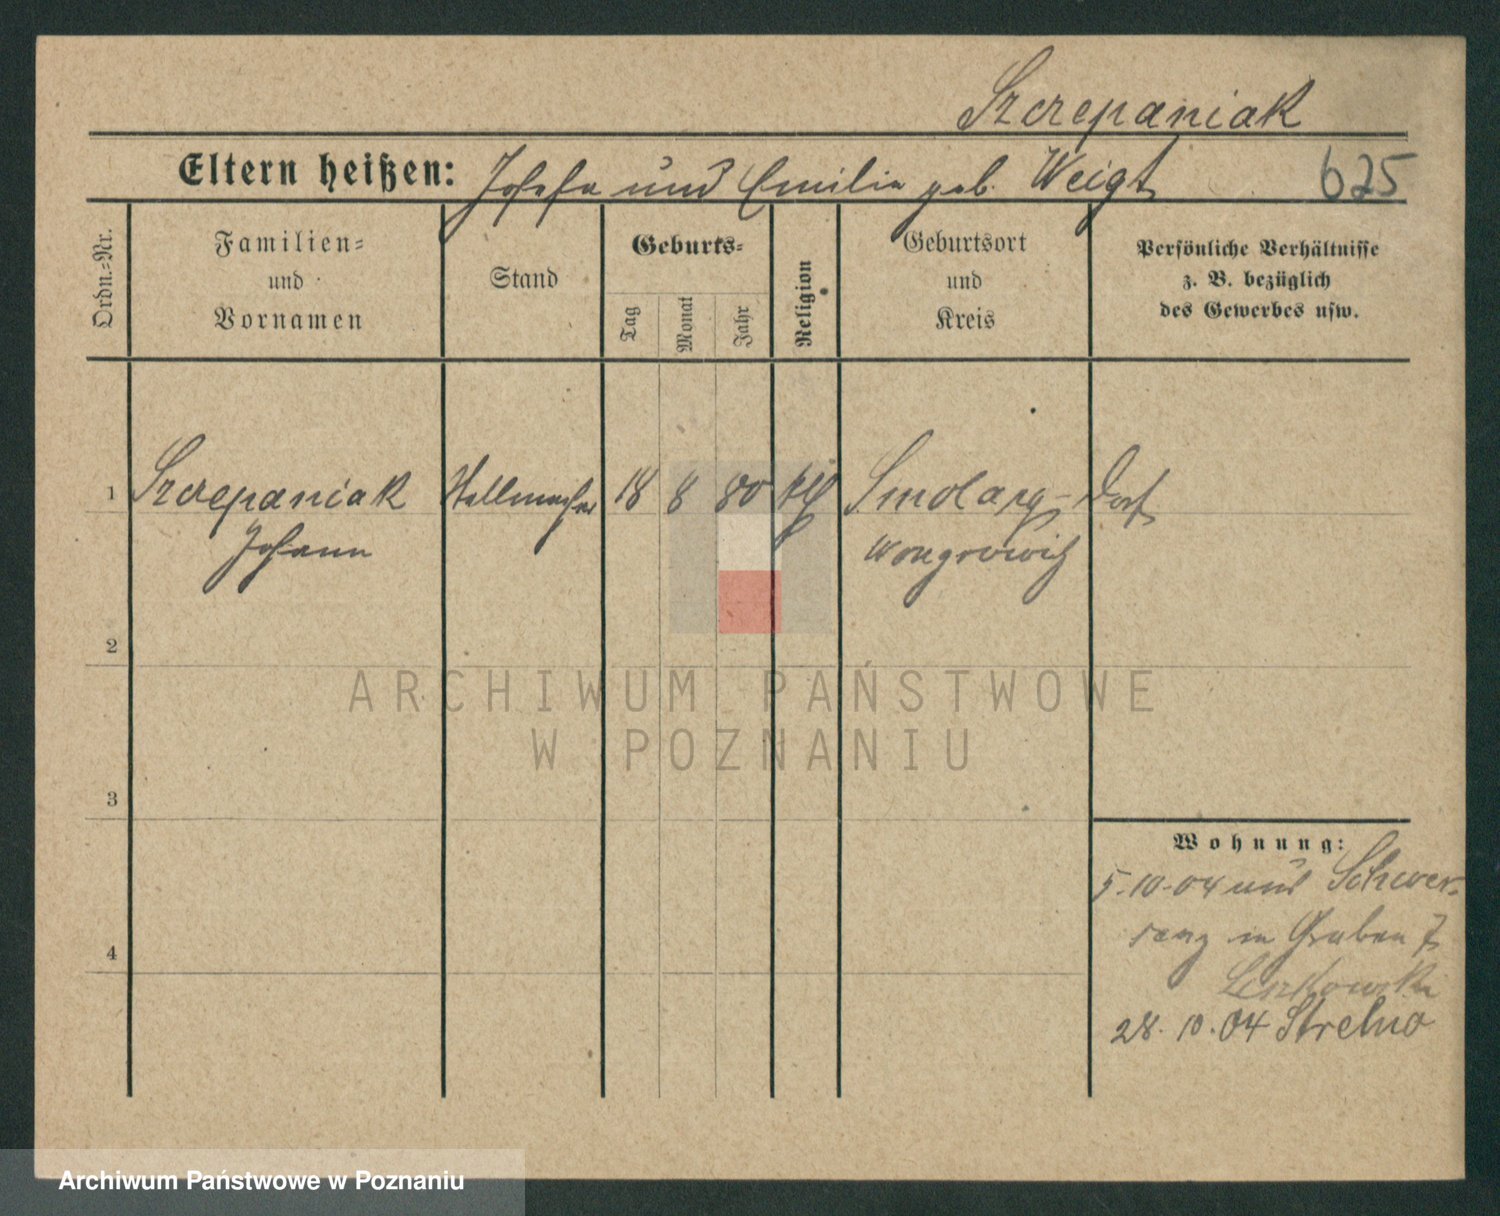 Szczepaniak
Eltern heißen: Josefa und Emilia geb. Weigt
625
Ordn.=Nr.
Familien=
und
Vornamen
Stand
Geburts=
Tag
Monat
Jahr
Religion
Geburtsort
und
Kreis
Persönliche Verhältnisse
z. B. bezüglich
des Gewerbes usw.
1 Szczepaniak Stellmacher 18 8 80 kth Smolary-Dorf
Johann Wongrowitz
2
3
4
Wohnung:
5.10.04 aus Schwer-
senz in Graben 7
28.10.04 Strelno
ARCHIWUM PAŃSTWOWE
W POZNANIU
Archiwum Państwowe w Poznaniu